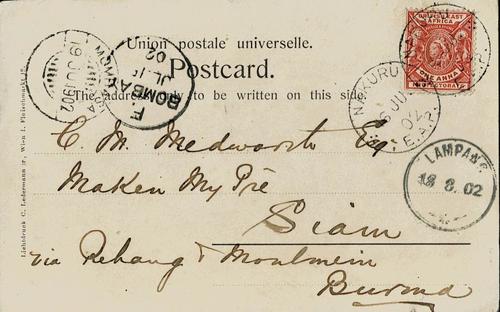 Union postale universelle.
Postcard.
The address only to be written on this side.
BRITISH EAST
AFRICA
ONE ANNA
PROTECTORATE
NAKURU
JU
02
E.A.P.
MOMBASA
19 JU 1902
BOMBAY
JL
02
LAMPANG
18 8. 02
C. M. Medworth Esq
Maken My Pre
Siam
via Rehang & Moulmein
Burma
Lichtdruck C. Ledermann jr., Wien I. Fleischmarkt